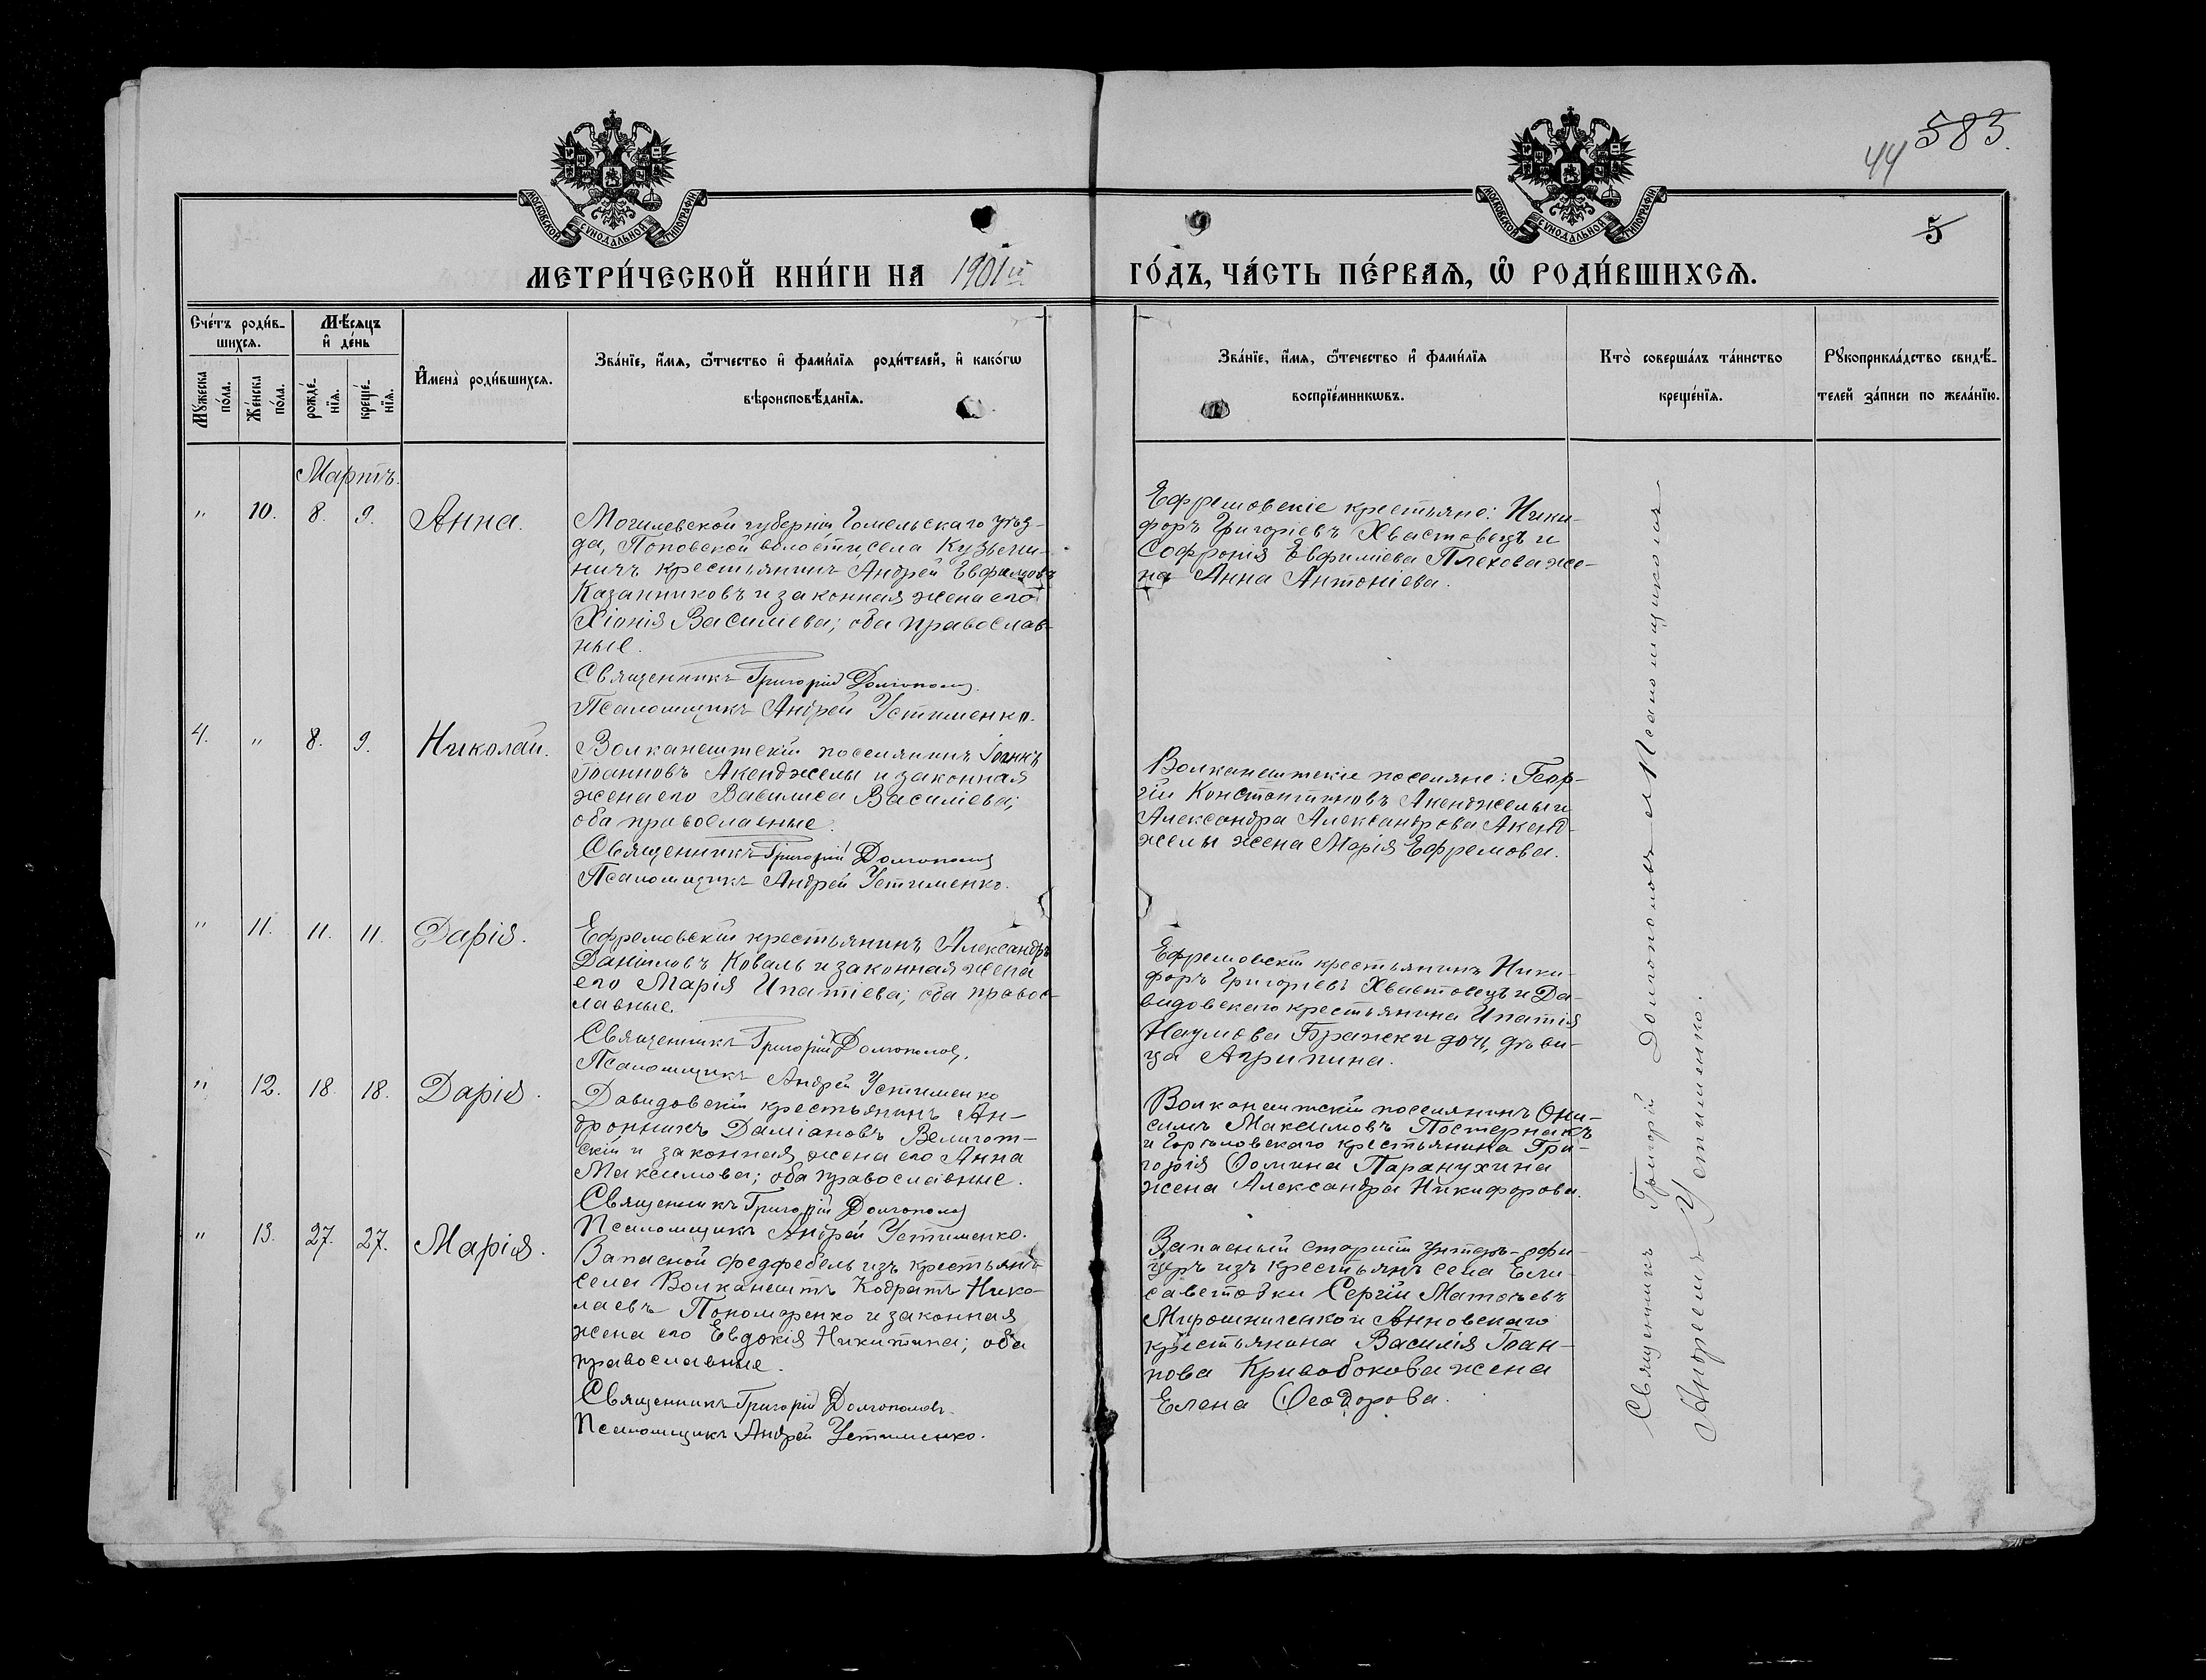 44 583.
5
МОСКОВСКОЙ СУНОДАЛЬНОЙ ТИПОГРАФІИ
МОСКОВСКОЙ СУНОДАЛЬНОЙ ТИПОГРАФІИ
МЕТРИ́ЧЕСКОЙ КНИ́ГИ НА 1901й
ГО́ДЪ, ЧА́СТЬ ПЕ́РВАѦ, Ѡ҆ РОДИ́ВШИХСѦ.
Сче́тъ роди́в-
шихсѧ.
Мꙋ́жеска по́ла.
Же́нска по́ла.
Мѣ́сѧцъ
и҆ де́нь
рожде́нїѧ.
креще́нїѧ.
И҆мена̀ роди́вшихсѧ.
Зва́нїе, и҆́мѧ, ѻ҆́тчество и҆ фами́лїѧ роди́телей, и҆ како́гѡ
вѣроисповѣ́данїѧ.
Зва́нїе, и҆́мѧ, ѻ҆́течество и҆ фами́лїѧ
воспрїе́мникѡвъ.
Кто̀ соверша́лъ та́инство
креще́нїѧ.
Рꙋкоприкла́дство свидѣ́-
телей за́писи по жела́нїю.
Мартъ.
" 10. 8. 9. Анна.
Могилевской губерніи Гомельскаго уѣз-
да, Поповской волости, села Кузьми-
ничъ крестьянинъ Андрей Евфимовъ
Казанниковъ и законная жена его
Хіонія Василіева; оба православ-
ные.
Священникъ Григорій Долгополовъ
Псаломщикъ Андрей Устименко.
Ефремовскіе крестьяне: Ники-
форъ Григоріевъ Хвастовецъ и
Софронія Евфиміева Плехова же-
на Анна Антоніева.
4. " 8. 9. Николай.
Волканештскій поселянинъ Іоаннъ
Іоанновъ Акенджелы и законная
жена его Василиса Василіева;
оба православные.
Священникъ Григорій Долгополовъ
Псаломщикъ Андрей Устименко.
Волканештскіе поселяне: Геор-
гій Константиновъ Акенджелы и
Александра Александрова Акенд-
желы жена Марія Ефремова.
" 11. 11. 11. Дарія.
Ефремовскій крестьянинъ Александръ
Даніиловъ Коваль и законная жена
его Марія Ипатіева; оба правос-
лавные.
Священникъ Григорій Долгополовъ.
Псаломщикъ Андрей Устименко
Ефремовскій крестьянинъ Ники-
форъ Григоріевъ Хвастовецъ и Да-
видовскаго крестьянина Ипатія
Наумова Бражски дочь, дѣви-
ца Агрипина.
" 12. 18. 18. Дарія.
Давидовскій крестьянинъ Ан-
дронникъ Даміановъ Великот-
скій и законная жена его Анна
Максимова; оба православные.
Священникъ Григорій Долгополовъ
Псаломщикъ Андрей Устименко.
Волканештскій поселянинъ Они-
симъ Максимовъ Постернакъ
и крестьянина Гри-
горія Ѳомина Паранухина
жена Александра Никифорова.
" 13. 27. 27. Марія.
Запасной федфебель изъ крестьянъ
села Волканештъ Кодратъ Нико-
лаевъ Пономаренко и законная
жена его Евдокія Никитина; оба
православные.
Священникъ Григорій Долгополовъ
Псаломщикъ Андрей Устименко.
Запасный старшій унтеръ-офи-
церъ изъ крестьянъ села Ели-
саветовки Сергій Матѳеевъ
Мирошниченко и Анновскаго
крестьянина Василія Іоан-
нова Кривобокова жена
Елена Ѳеодорова.
Священникъ Григорій Долгополовъ съ Псаломщикомъ
Андреемъ Устименко.